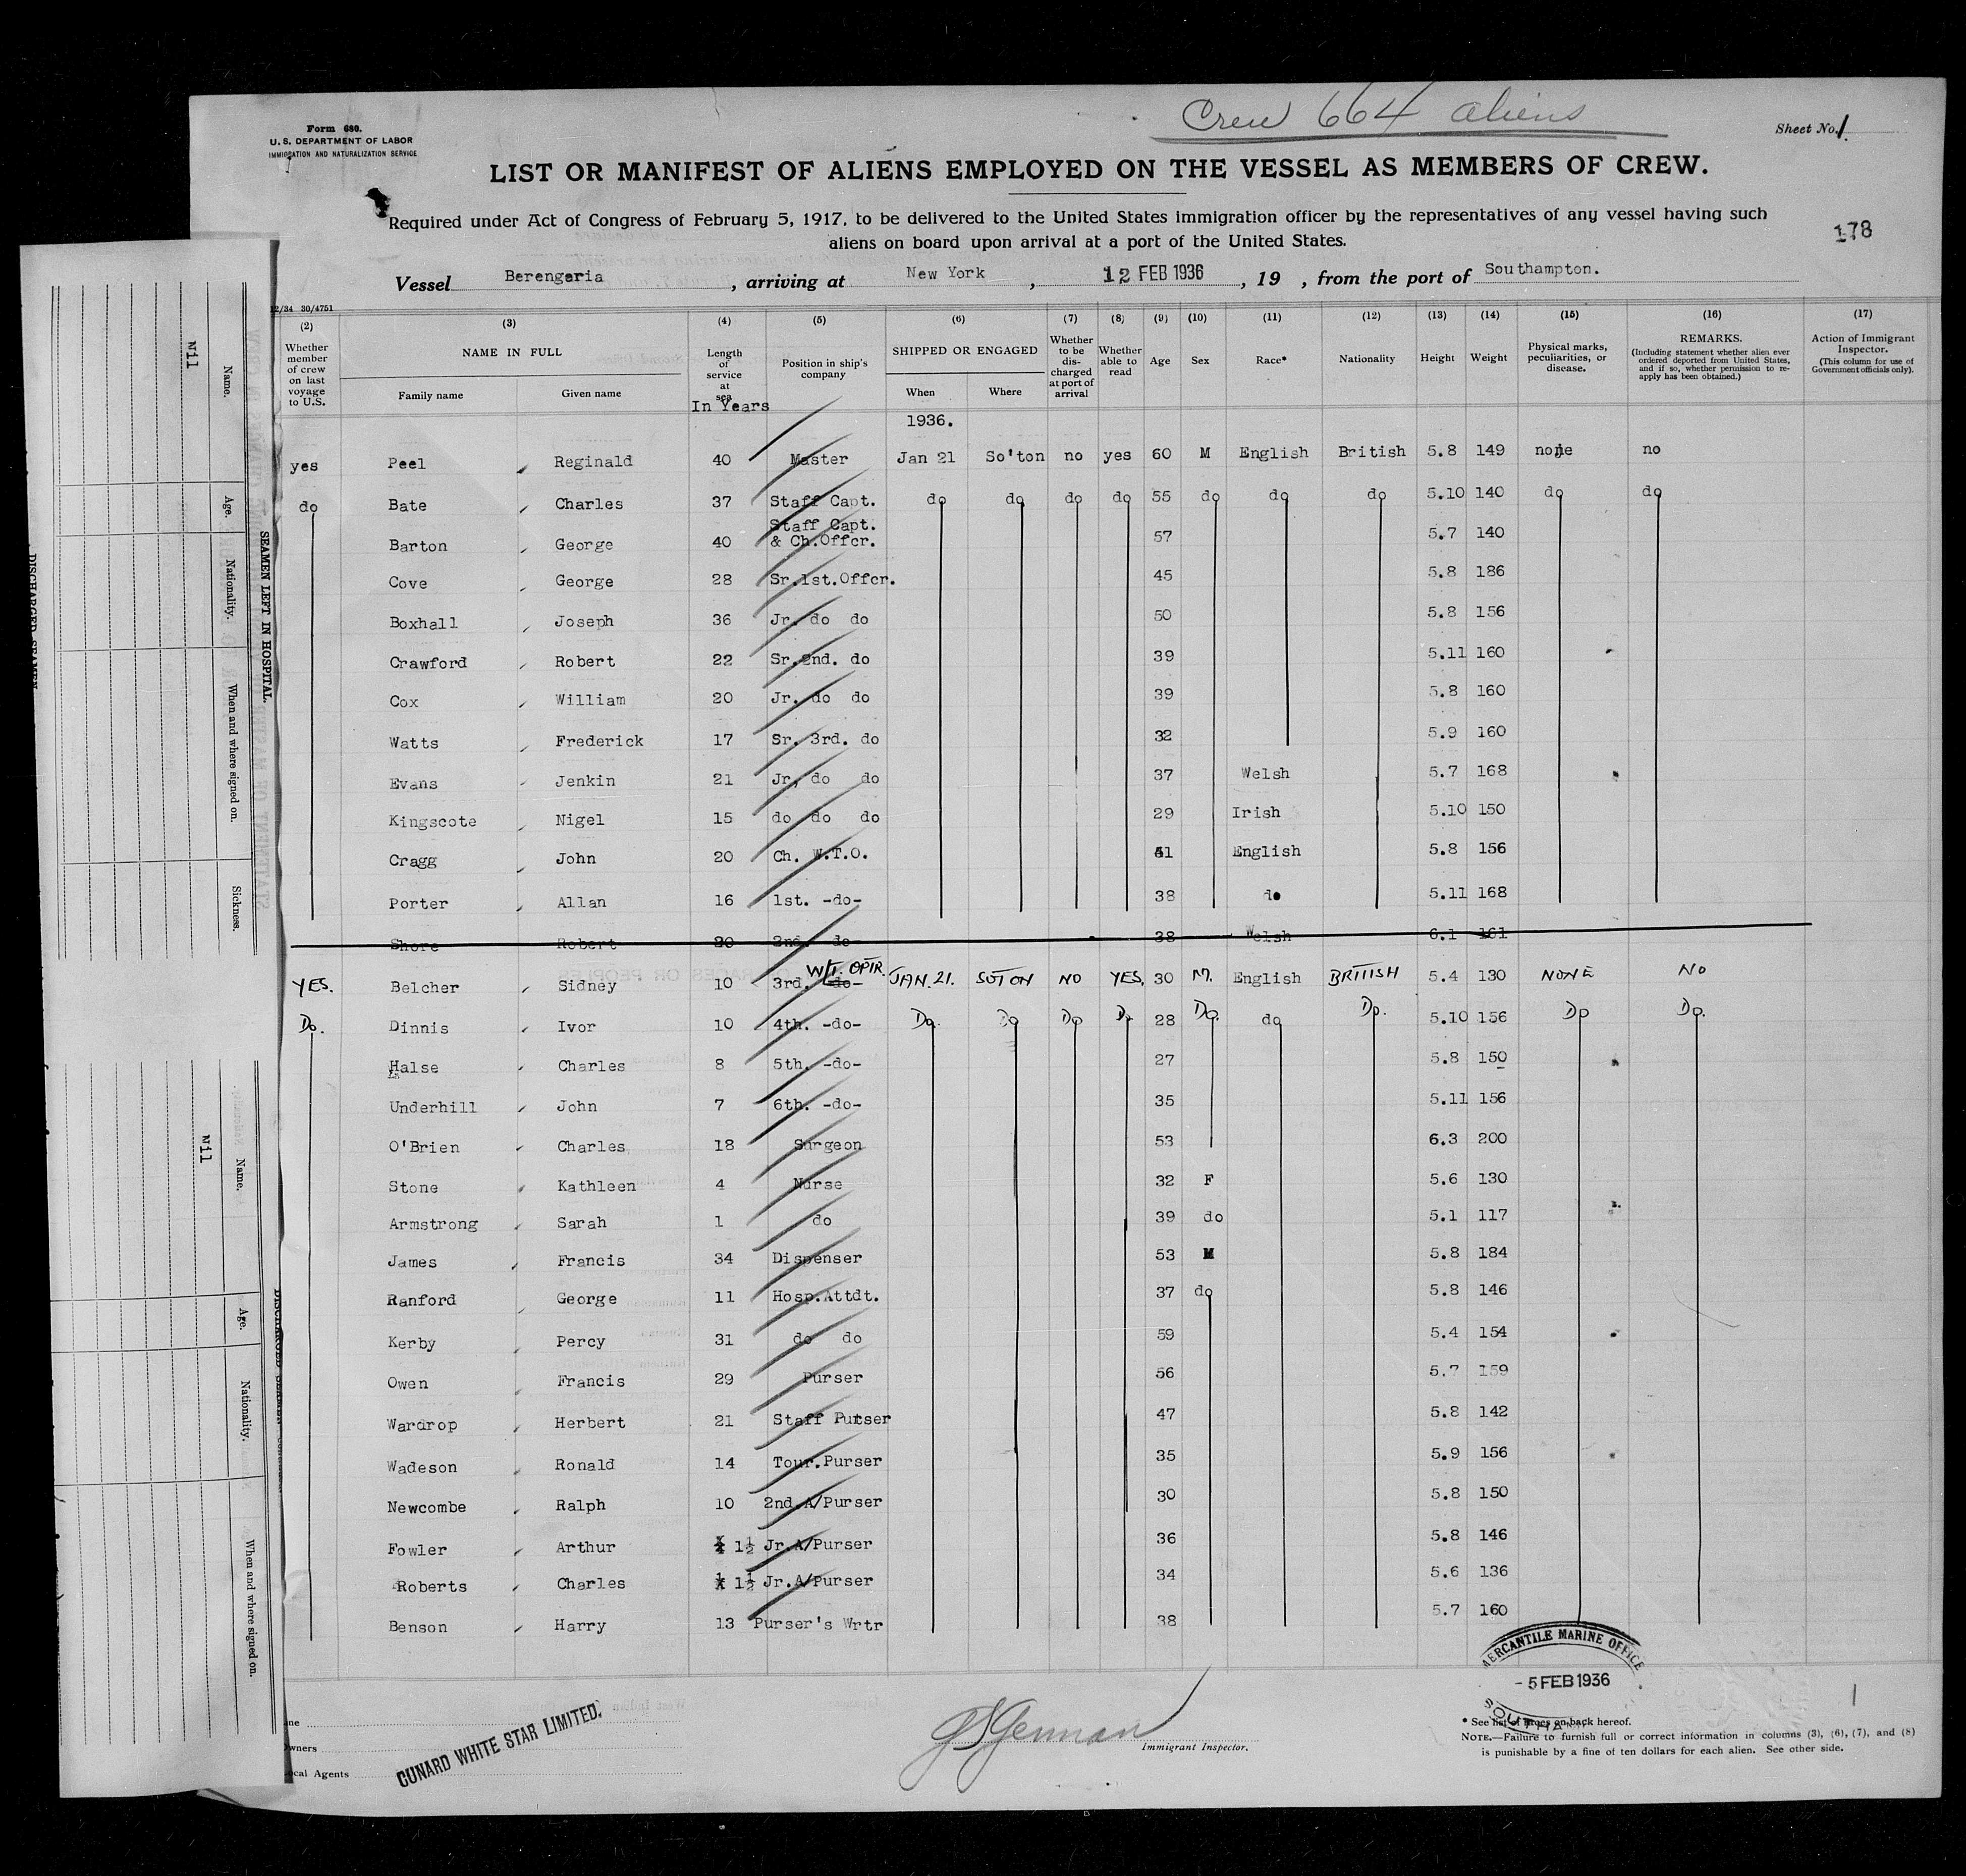 Crew 664 aliens
Form 680.
U. S. DEPARTMENT OF LABOR
IMMIGRATION AND NATURALIZATION SERVICE
Sheet No. 1
LIST OR MANIFEST OF ALIENS EMPLOYED ON THE VESSEL AS MEMBERS OF CREW.
Required under Act of Congress of February 5, 1917, to be delivered to the United States immigration officer by the representatives of any vessel having such
aliens on board upon arrival at a port of the United States.
178
Vessel Berengaria, arriving at New York, 12 FEB 1936, 19 , from the port of Southampton.
12/34 30/4751
(2) (3) (4) (5) (6) (7) (8) (9) (10) (11) (12) (13) (14) (15) (16) (17)
Whether member of crew on last voyage to U.S.
NAME IN FULL
Family name Given name
Length of service at sea
In Years
Position in ship's company
SHIPPED OR ENGAGED
When Where
Whether to be discharged at port of arrival
Whether able to read
Age
Sex
Race*
Nationality
Height
Weight
Physical marks, peculiarities, or disease.
REMARKS.
(Including statement whether alien ever ordered deported from United States, and if so, whether permission to re-apply has been obtained.)
Action of Immigrant Inspector.
(This column for use of Government officials only).
1936.
yes Peel Reginald 40 Master Jan 21 So'ton no yes 60 M English British 5.8 149 none no
do Bate Charles 37 Staff Capt. do do do do 55 do do do 5.10 140 do do
Staff Capt.
Barton George 40 & Ch.Offcr. 57 5.7 140
Cove George 28 Sr.1st.Offcr. 45 5.8 186
Boxhall Joseph 36 Jr. do do 50 5.8 156
Crawford Robert 22 Sr.2nd. do 39 5.11 160
Cox William 20 Jr. do do 39 5.8 160
Watts Frederick 17 Sr. 3rd. do 32 5.9 160
Evans Jenkin 21 Jr. do do 37 Welsh 5.7 168
Kingscote Nigel 15 do do do 29 Irish 5.10 150
Cragg John 20 Ch. W.T.O. 41 English 5.8 156
Porter Allan 16 1st. -do- 38 do 5.11 168
Shore Robert 20 2nd. do 38 Welsh 6.1 161
W/T. OPTR.
YES. Belcher Sidney 10 3rd. -do- JAN. 21. SOTON NO YES, 30 M. English BRITISH 5.4 130 NONE NO
Do. Dinnis Ivor 10 4th. -do- Do. Do Do Do 28 Do. do Do. 5.10 156 Do Do.
Halse Charles 8 5th. -do- 27 5.8 150
Underhill John 7 6th. -do- 35 5.11 156
O'Brien Charles 18 Surgeon 53 6.3 200
Stone Kathleen 4 Nurse 32 F 5.6 130
Armstrong Sarah 1 do 39 do 5.1 117
James Francis 34 Dispenser 53 M 5.8 184
Ranford George 11 Hosp.Attdt. 37 do 5.8 146
Kerby Percy 31 do do 59 5.4 154
Owen Francis 29 Purser 56 5.7 159
Wardrop Herbert 21 Staff Purser 47 5.8 142
Wadeson Ronald 14 Tour.Purser 35 5.9 156
Newcombe Ralph 10 2nd.A/Purser 30 5.8 150
Fowler Arthur 1½ Jr.A/Purser 36 5.8 146
Roberts Charles 1½ Jr.A/Purser 34 5.6 136
Benson Harry 13 Purser's Wrtr 38 5.7 160
MERCANTILE MARINE OFFICE
- 5 FEB 1936
CUNARD WHITE STAR LIMITED.
Immigrant Inspector.
* See list of races on back hereof.
NOTE.—Failure to furnish full or correct information in columns (3), (6), (7), and (8)
is punishable by a fine of ten dollars for each alien. See other side.
1
SEAMEN LEFT IN HOSPITAL.
Name. Age. Nationality. When and where signed on. Sickness.
Nil
DISCHARGED SEAMEN
Name. Age. Nationality. When and where signed on.
Nil